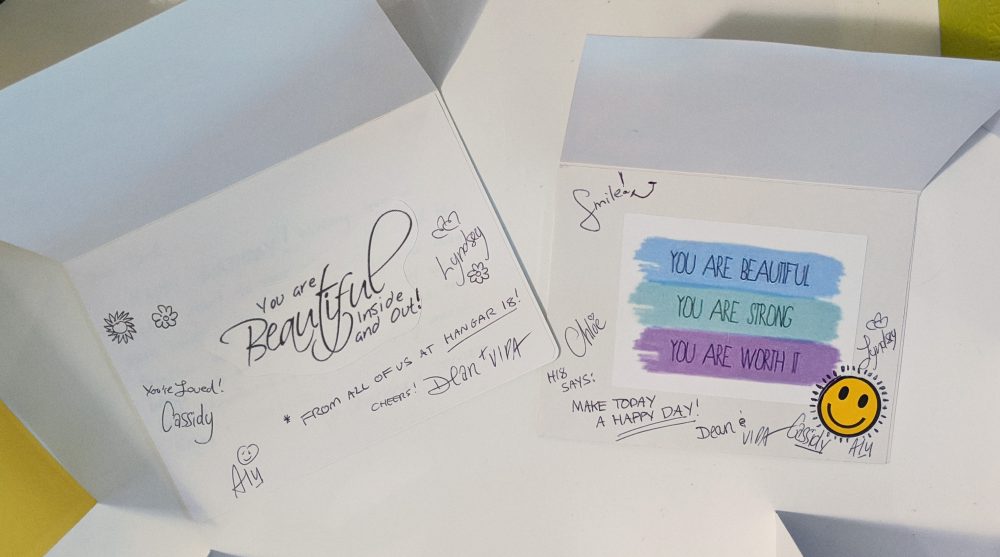 You are
Beautiful
inside
and Out!
Lyndsey
You're Loved!
Cassidy
* FROM ALL OF US AT HANGAR 18!
CHEERS! Dean + VIDA
Aly
Smile!
YOU ARE BEAUTIFUL
YOU ARE STRONG
YOU ARE WORTH IT
Chloe
Lyndsey
H18
SAYS:
MAKE TODAY
A HAPPY DAY!
Dean & VIDA
Cassidy
Aly